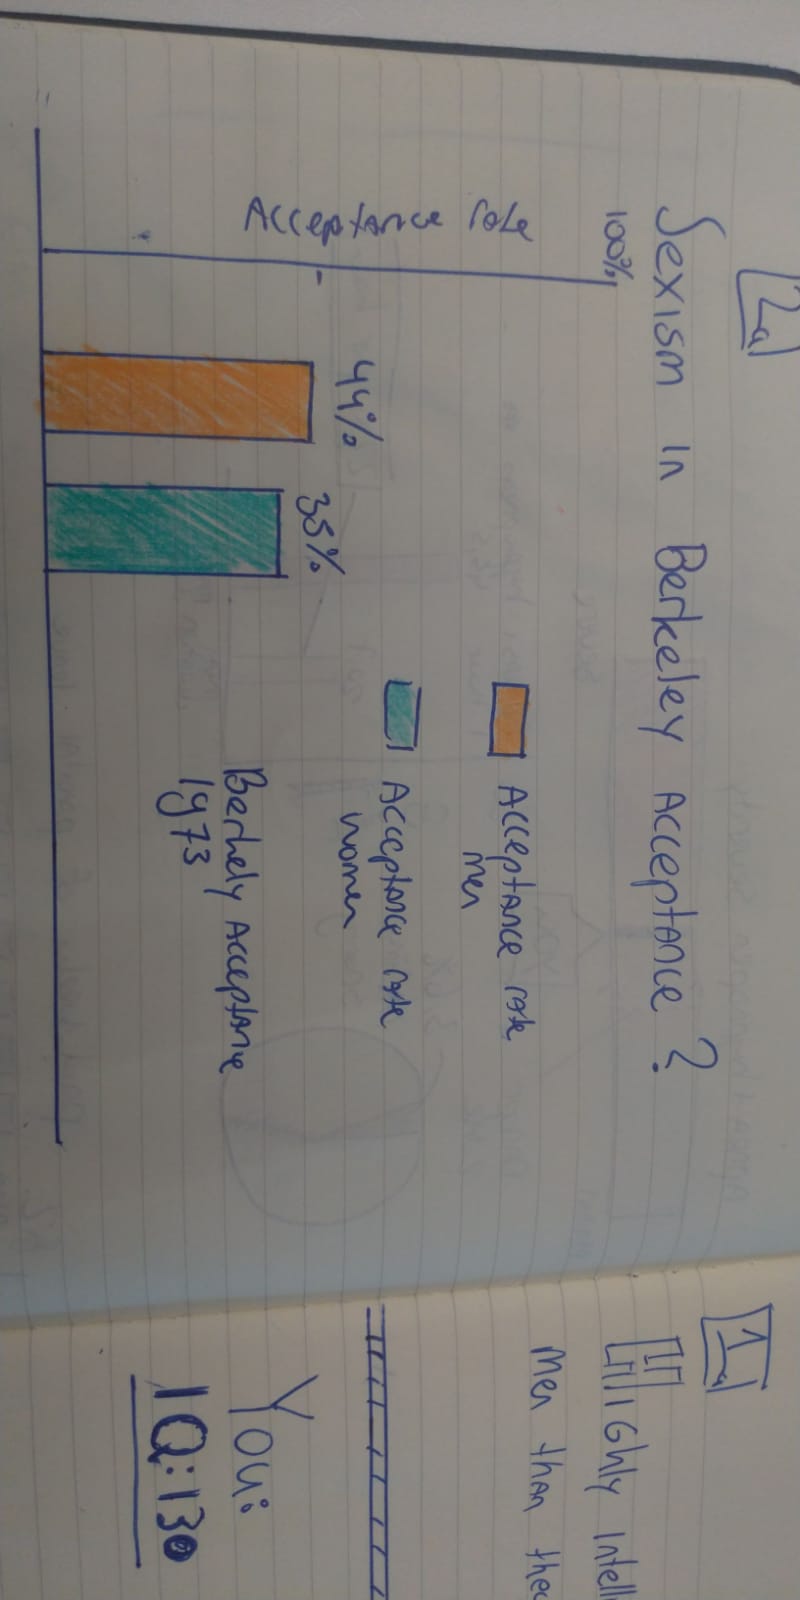 2a
Sexism in Berkeley Acceptance?
100%
Acceptance rate
Acceptance rate
men
Acceptance rate
women
44%
35%
Berkely Acceptance
1973
1a
Highly Intell
men than
You:
IQ:130